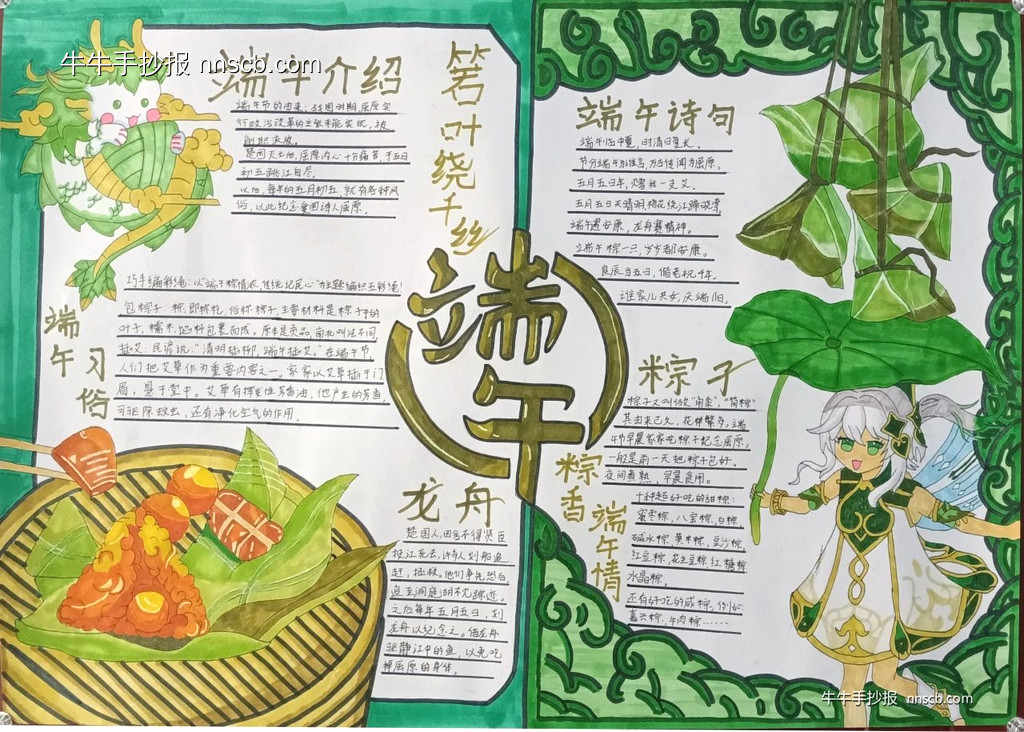 牛牛手抄报 nnscb.com
端午介绍
端午节的由来：战国时期，屈原实
行政治改革的主张未能实现，被
削职流放。
楚国灭亡后，屈原内心十分痛苦，于五月
初五跳江自尽。
以后，每年的五月初五，就有各种风
俗，以此纪念爱国诗人屈原。
箬叶绕千丝
端午习俗
巧手编彩绳：以“端午粽情浓，传统记民心”为主题编织五彩绳！
包粽子：粽，即粽籺，俗称粽子，主要材料是
叶子，糯米，馅料包裹而成。原本是贡品，南北叫法不同
插艾：民谚说：“清明插柳，端午插艾。”在端午节，
人们把艾草作为重要内容之一。家家以艾草插于门
眉，悬于堂中。艾草有挥发性芳香油，他产生的芳香，
可驱除蚊虫，还有净化空气的作用。
端午
龙舟
楚国人因舍不得贤臣
投江死去，许多人划船追
赶，拯救。他们争先恐后，
追至洞庭湖不见踪迹，
之后每年五月五日，划
龙舟以纪念之。借龙舟
驱散江中的鱼，以免吃
掉屈原的身体。
端午诗句
端午临中夏，时清日复长。
节分端午自谁言，万古传闻为屈原。
五月五日午，赠我一支艾。
五月五日天晴明，杨花绕江啼晓莺，
端午遇安康，龙舟赛精神。
端午粽一只，岁岁都安康。
良辰当五日，偕老祝千年。
谁家儿共女，庆端阳。
粽子
粽子又叫做“角黍”，“筒粽”
其由来已久，花样繁多，端
午节早晨家家吃粽子纪念屈原，
一般是前一天把粽子包好。
夜间煮熟，早晨食用。
十种超好吃的甜粽：
蜜枣粽，八宝粽，白粽，
碱水粽，黄米粽，豆沙粽，
红豆粽，花生豆粽，红糖粽，
水晶粽。
还有好吃的咸粽，例如：
蛋黄粽，牛肉粽……
粽香端午情
牛牛手抄报 nnscb.com